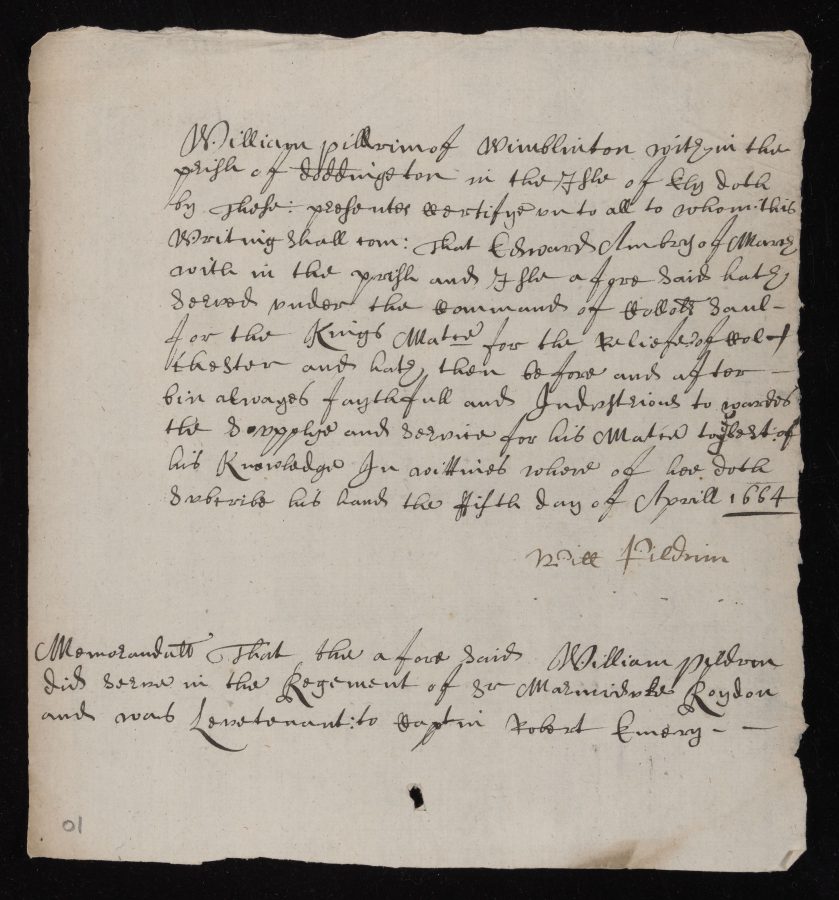 William pilldrim of Wimblinton with in the
prish of doddington in the Isle of Ely doth
by These: presentes certifye un to all to whom: this
Writing shall com: That Edward Ambry of March
with in the prish and Isle a fore said hath
served under the command of Collo Saul-
for the Kings Matie for the Reliefe: of Col-
chester and hath, then before and after -
bin alwayes faythfull and Industrious to wardes
the supplye and service for his Matie to ye best of
his Knowledge In wittnies where of hee doth
subcribe his hand the fifth day of Aprill 1664
Will Pildrim
Memorandum That the a fore said William pildrim
did serve in the Regement of Sr Marmiduke Roydon
and was Levetenant: to Captin Robert Emery - -
01